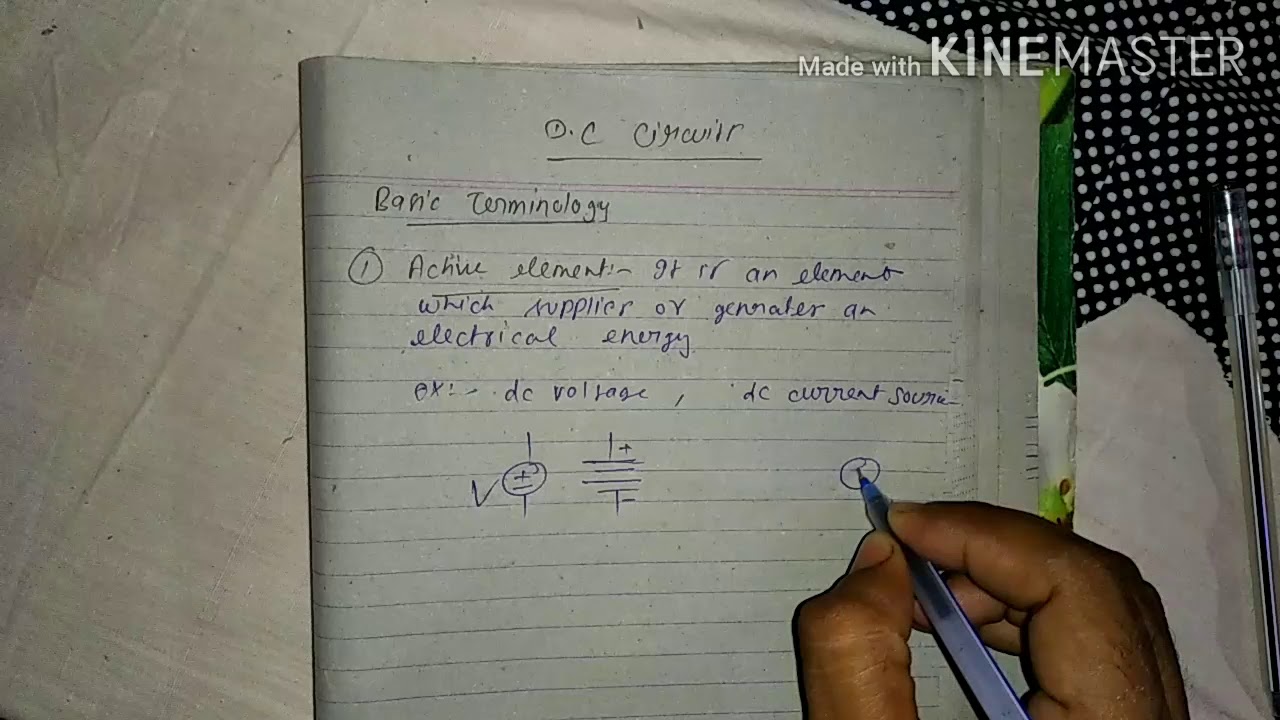 Made with KINEMASTER
D.C Circuits
Basic Terminology
① Active element:- It is an element
which supplies or generates an
electrical energy.
ex:- dc voltage, dc current source
+
V + -